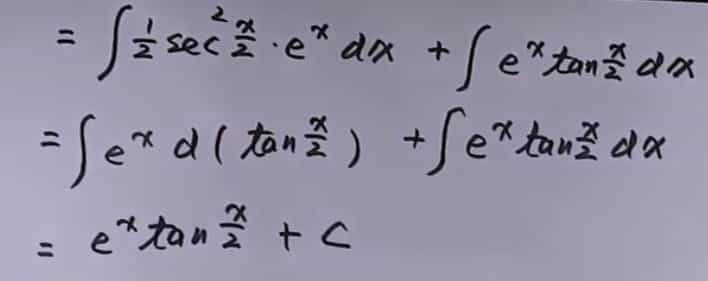 = ∫ 1/2 sec² x/2 · eˣ dx + ∫ eˣ tan x/2 dx
= ∫ eˣ d ( tan x/2 ) + ∫ eˣ tan x/2 dx
= eˣ tan x/2 + C